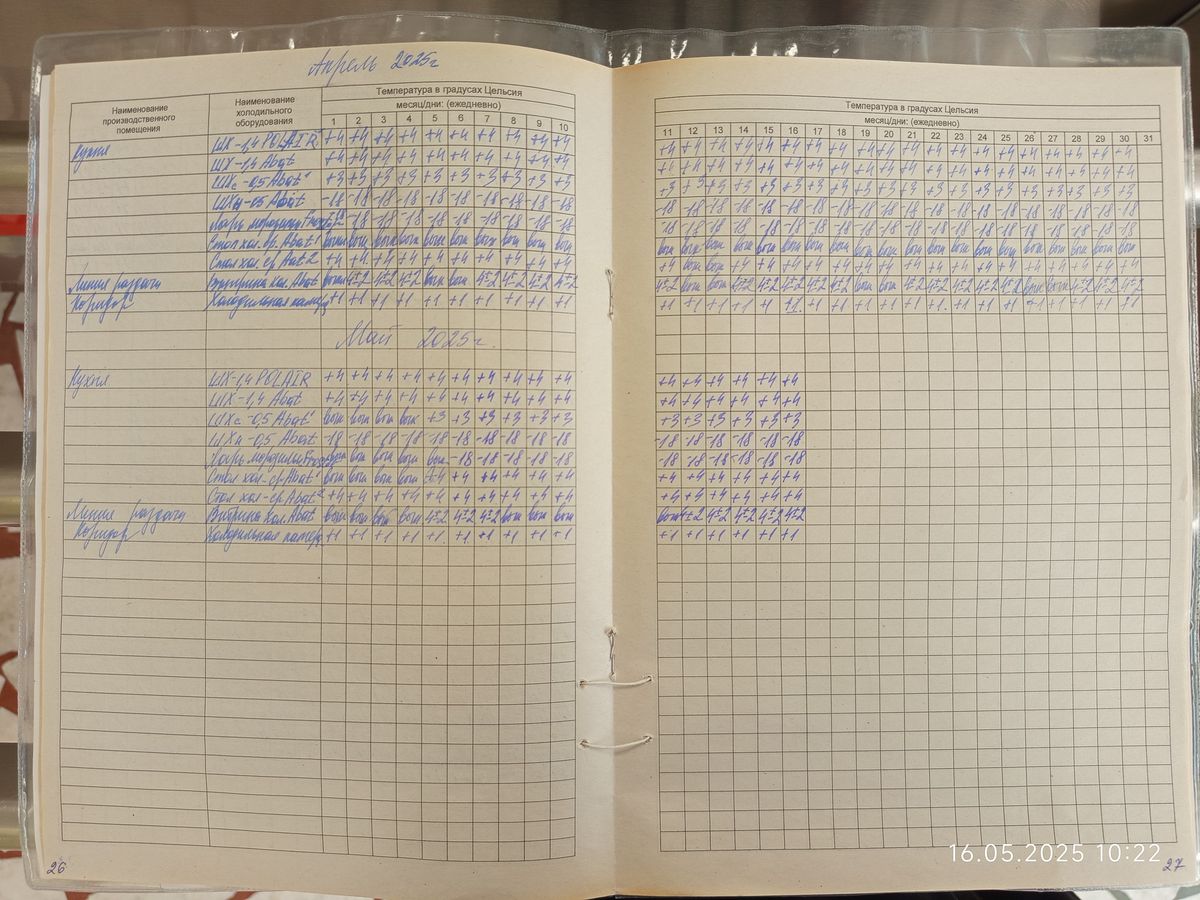 Апрель 2025г
Наименование производственного помещения Наименование холодильного оборудования Температура в градусах Цельсия
месяц/дни: (ежедневно)
1 2 3 4 5 6 7 8 9 10
Кухня ШХ-1,4 POLAIR +4 +4 +4 +4 +4 +4 +4 +4 +4 +4
ШХ-1,4 Abat +4 +4 +4 +4 +4 +4 +4 +4 +4 +4
ШХс-0,5 Abat +3 +3 +3 +3 +3 +3 +3 +3 +3 +3
ШХн-0,5 Abat -18 -18 -18 -18 -18 -18 -18 -18 -18 -18
Ларь морозильн -18 -18 -18 -18 -18 -18 -18 -18 -18
Стол хол. ср. Abat 1
Стол хол. ср. Abat 2 +4 +4 +4 +4 +4 +4 +4 +4 +4 +4
Линия раздачи Витрина хол. Abat 4±2 4±2 4±2 4±2 4±2 4±2 4±2
Коридор Холодильная камера +1 +1 +1 +1 +1 +1 +1 +1 +1 +1
Май 2025г.
Кухня ШХ-1,4 POLAIR +4 +4 +4 +4 +4 +4 +4 +4 +4 +4
ШХ-1,4 Abat +4 +4 +4 +4 +4 +4 +4 +4 +4 +4
ШХс-0,5 Abat +3 +3 +3 +3 +3 +3
ШХн-0,5 Abat -18 -18 -18 -18 -18 -18 -18 -18 -18 -18
Ларь морозильн -18 -18 -18 -18 -18
Стол хол-ср. Abat 1 +4 +4 +4 +4 +4 +4
Стол хол-ср. Abat 2 +4 +4 +4 +4 +4 +4 +4 +4 +4 +4
Линия раздачи Витрина хол. Abat 4±2 4±2 4±2
Коридор Холодильная камера +1 +1 +1 +1 +1 +1 +1 +1 +1 +1
26
Температура в градусах Цельсия
месяц/дни: (ежедневно)
11 12 13 14 15 16 17 18 19 20 21 22 23 24 25 26 27 28 29 30 31
+4 +4 +4 +4 +4 +4 +4 +4 +4 +4 +4 +4 +4 +4 +4 +4 +4 +4 +4 +4
+4 +4 +4 +4 +4 +4 +4 +4 +4 +4 +4 +4 +4 +4 +4 +4 +4 +4 +4 +4
+3 +3 +3 +3 +3 +3 +3 +3 +3 +3 +3 +3 +3 +3 +3 +3 +3 +3 +3 +3
-18 -18 -18 -18 -18 -18 -18 -18 -18 -18 -18 -18 -18 -18 -18 -18 -18 -18 -18 -18
-18 -18 -18 -18 -18 -18 -18 -18 -18 -18 -18 -18 -18 -18 -18 -18 -18 -18 -18 -18
+4 +4 +4 +4 +4 +4 +4 +4 +4 +4 +4 +4 +4 +4 +4 +4 +4 +4
4±2 4±2 4±2 4±2 4±2 4±2 4±2 4±2 4±2 4±2 4±2 4±2 4±2 4±2
+1 +1 +1 +1 +1 +1 +1 +1 +1 +1 +1 +1 +1 +1 +1 +1 +1 +1 +1 +1
+4 +4 +4 +4 +4 +4
+4 +4 +4 +4 +4 +4
+3 +3 +3 +3 +3 +3
-18 -18 -18 -18 -18 -18
-18 -18 -18 -18 -18 -18
+4 +4 +4 +4 +4 +4
+4 +4 +4 +4 +4 +4
4±2 4±2 4±2 4±2 4±2
+1 +1 +1 +1 +1 +1
16.05.2025 10:22
27